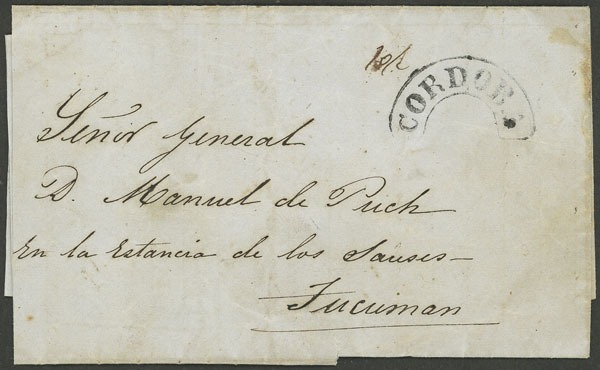 CORDOBA
Señor General
D. Manuel de Puch
En la Estancia de los Sauses—
Tucuman